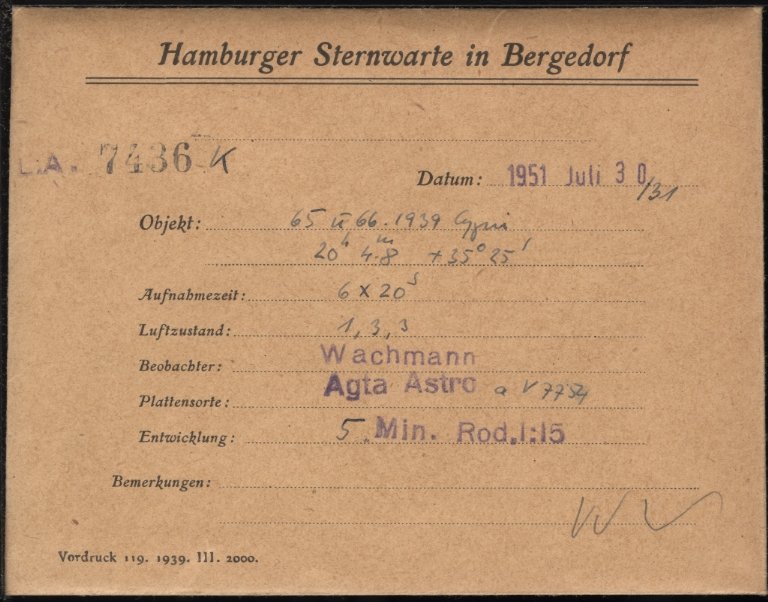 Hamburger Sternwarte in Bergedorf
L.A. 7436 K
Datum: 1951 Juli 30/31
Objekt: 65 u 66.1939 Cygni
20ʰ 4ᵐ.8 +35° 25'
Aufnahmezeit: 6 x 20ˢ
Luftzustand: 1, 3, 3
Beobachter: Wachmann
Plattensorte: Agfa Astro a V 7754
Entwicklung: 5 Min. Rod. 1:15
Bemerkungen:
Vordruck 119. 1939. III. 2000.